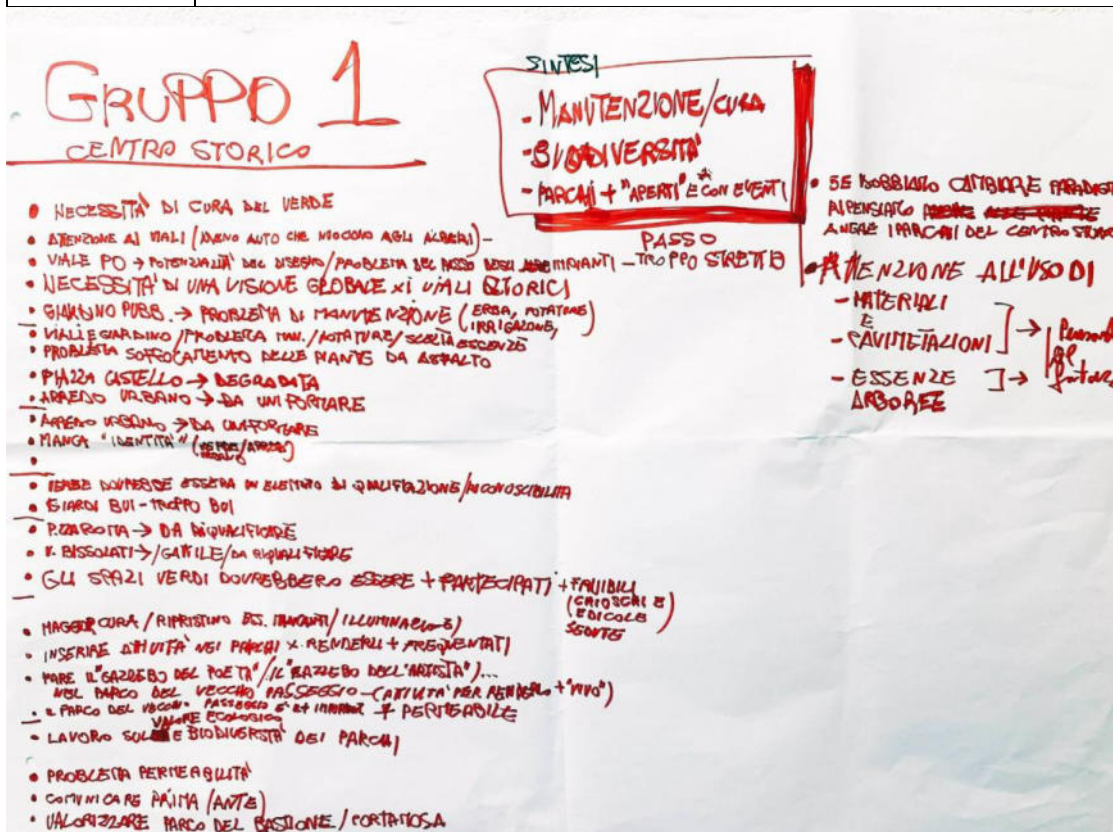 GRUPPO 1
CENTRO STORICO
• NECESSITÀ DI CURA DEL VERDE
• ATTENZIONE AI VIALI (MENO AUTO CHE NUOCIONO AGLI ALBERI) -
• VIALE PO → POTENZIALITÀ DEL DISEGNO / PROBLEMA DEL PASSO DEGLI IMPIANTI - TROPPO STRETTO
PASSO
• NECESSITÀ DI UNA VISIONE GLOBALE X i VIALI STORICI
• GIARDINO PUBB. → PROBLEMA DI MANUTENZIONE (ERBA, POTATURE, IRRIGAZIONE)
• VIALI E GIARDINO / PROBLEMA MAN. / POTATURE / SCELTA ESSENZE
• PROBLEMA SOFFOCAMENTO DELLE PIANTE DA ASFALTO
• PIAZZA CASTELLO → DEGRADATA
• ARREDO URBANO → DA UNIFORMARE
• ARREDO URBANO → DA UNIFORMARE
• MANCA "IDENTITÀ"
• VERDE DOVREBBE ESSERE UN ELEMENTO DI QUALIFICAZIONE / RICONOSCIBILITÀ
• GIARDI BUI - TROPPO BUI
• → DA RIQUALIFICARE
• V. BISSOLATI → / GATTILE / DA RIQUALIFICARE
• GLI SPAZI VERDI DOVREBBERO ESSERE + PARTECIPATI + FRUIBILI
(CHIOSCHI E EDICOLE
SEDUTE
• MAGGIOR CURA / RIPRISTINO ESS. MANCANTI / ILLUMINAZIONE)
• INSERIRE ATTIVITÀ NEI PARCHI X RENDERLI + FREQUENTATI
• FARE IL "GAZEBO DEL POETA" / IL "GAZZEBO DELL'ARTISTA")...
NEL PARCO DEL VECCHIO PASSEGGIO - (ATTIVITÀ PER RENDERLO + "VIVO")
• IL PARCO DEL VECCHIO PASSEGGIO È + PERMEABILE
VALORE ECOLOGICO
• LAVORO SUL E BIODIVERSITÀ DEI PARCHI
• PROBLEMA PERMEABILITÀ
• COMUNICARE PRIMA (ANTE)
• VALORIZZARE PARCO DEL BASTIONE / PORTA MOSA
SINTESI
- MANUTENZIONE/CURA
- BIODIVERSITÀ
- PARCHI + "APERTI" E CON EVENTI
• SE DOBBIAMO CAMBIARE
RIPENSIAMO
ANCHE I PARCHI DEL CENTRO
• ATTENZIONE ALL'USO DI
- MATERIALI
E
- PAVIMETAZIONI →
- ESSENZE →
ARBOREE